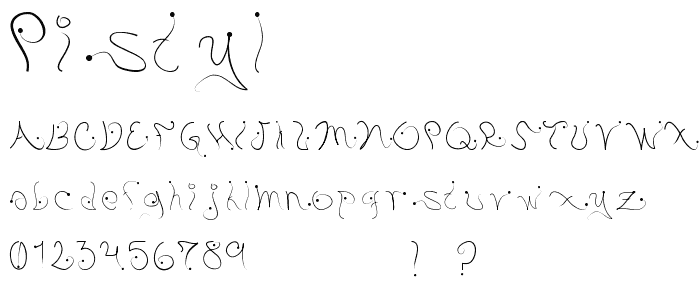 Pi.styl
ABCDEFGHIJKLMNOPQRSTUVWX
abcdefghijklmnopqrstuvwxyz
0123456789 ! ?